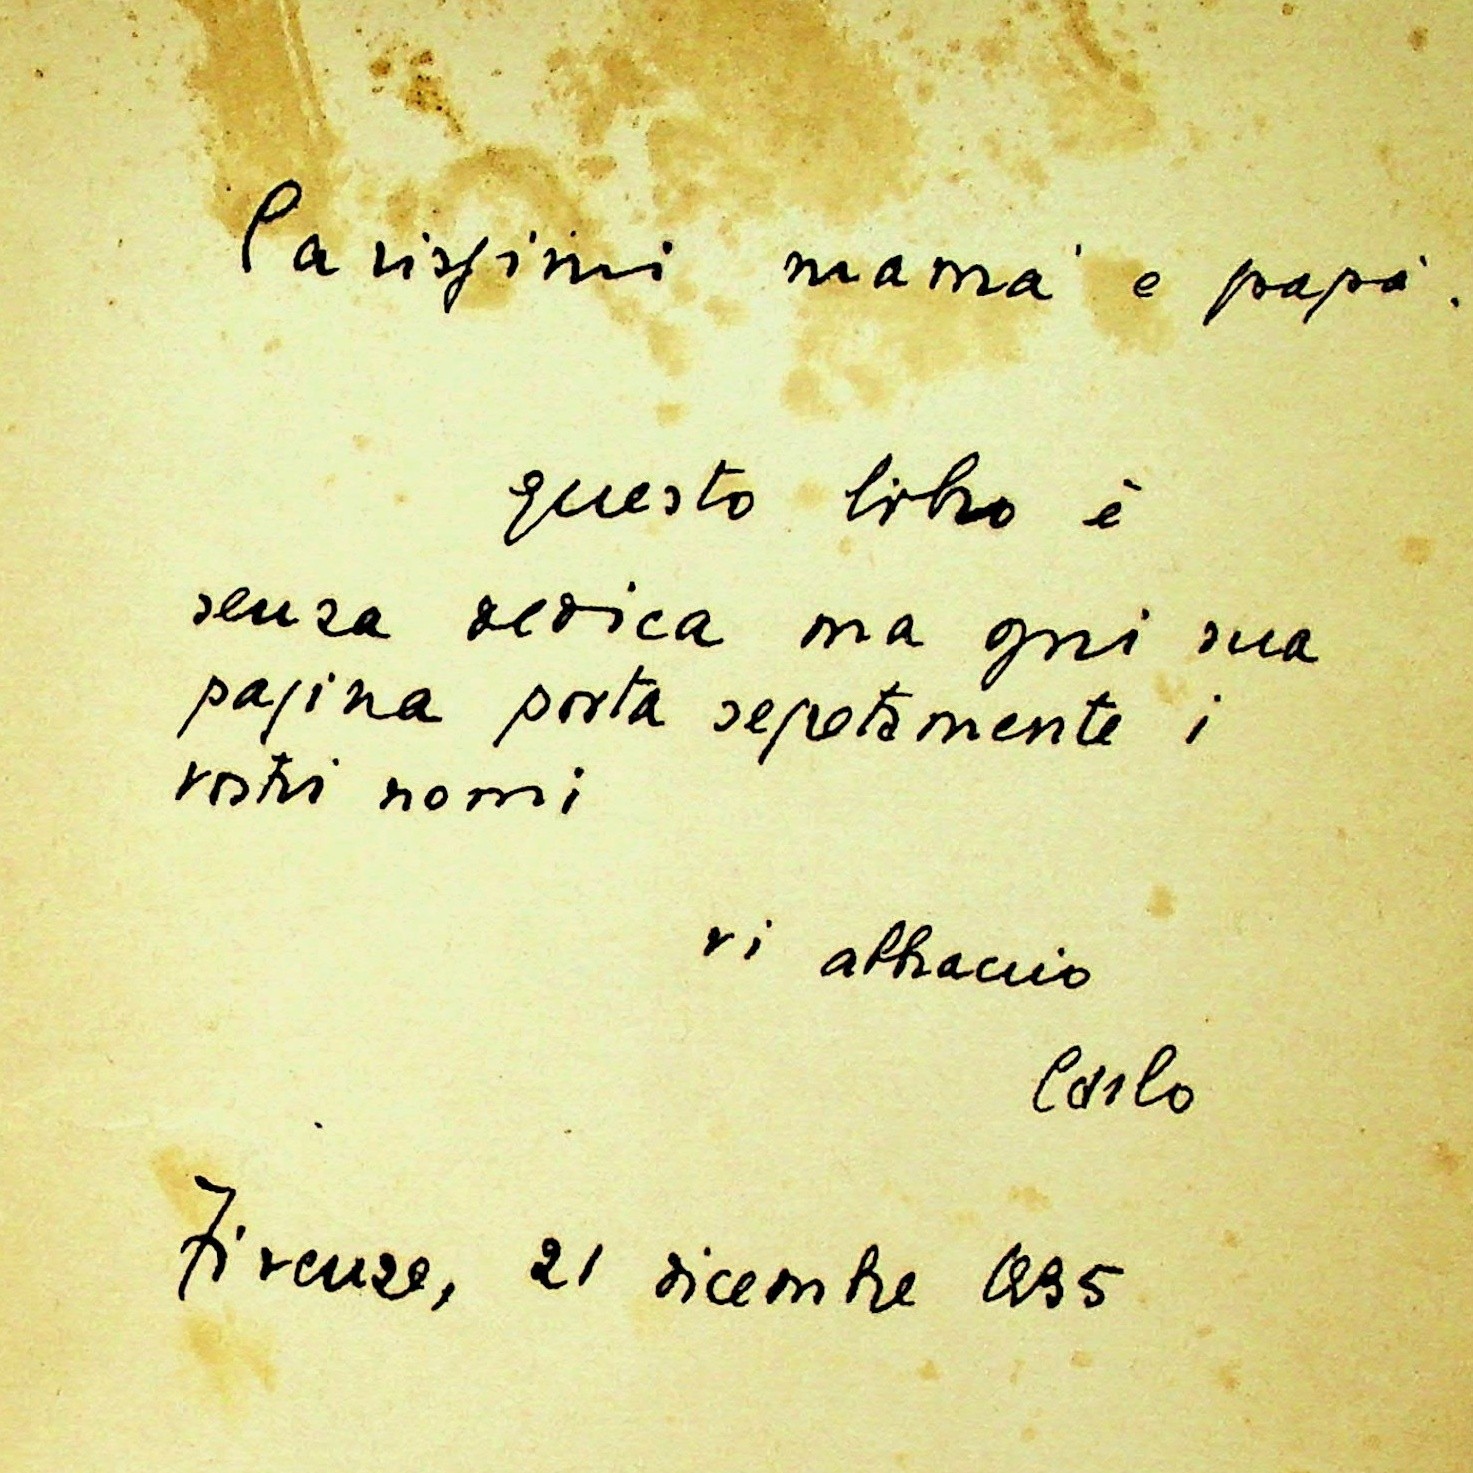 Carissimi mamá e papá.
questo libro è
senza dedica ma ogni sua
pagina porta segretamente i
vostri nomi
vi abbraccio
Carlo
Firenze, 21 dicembre 1935